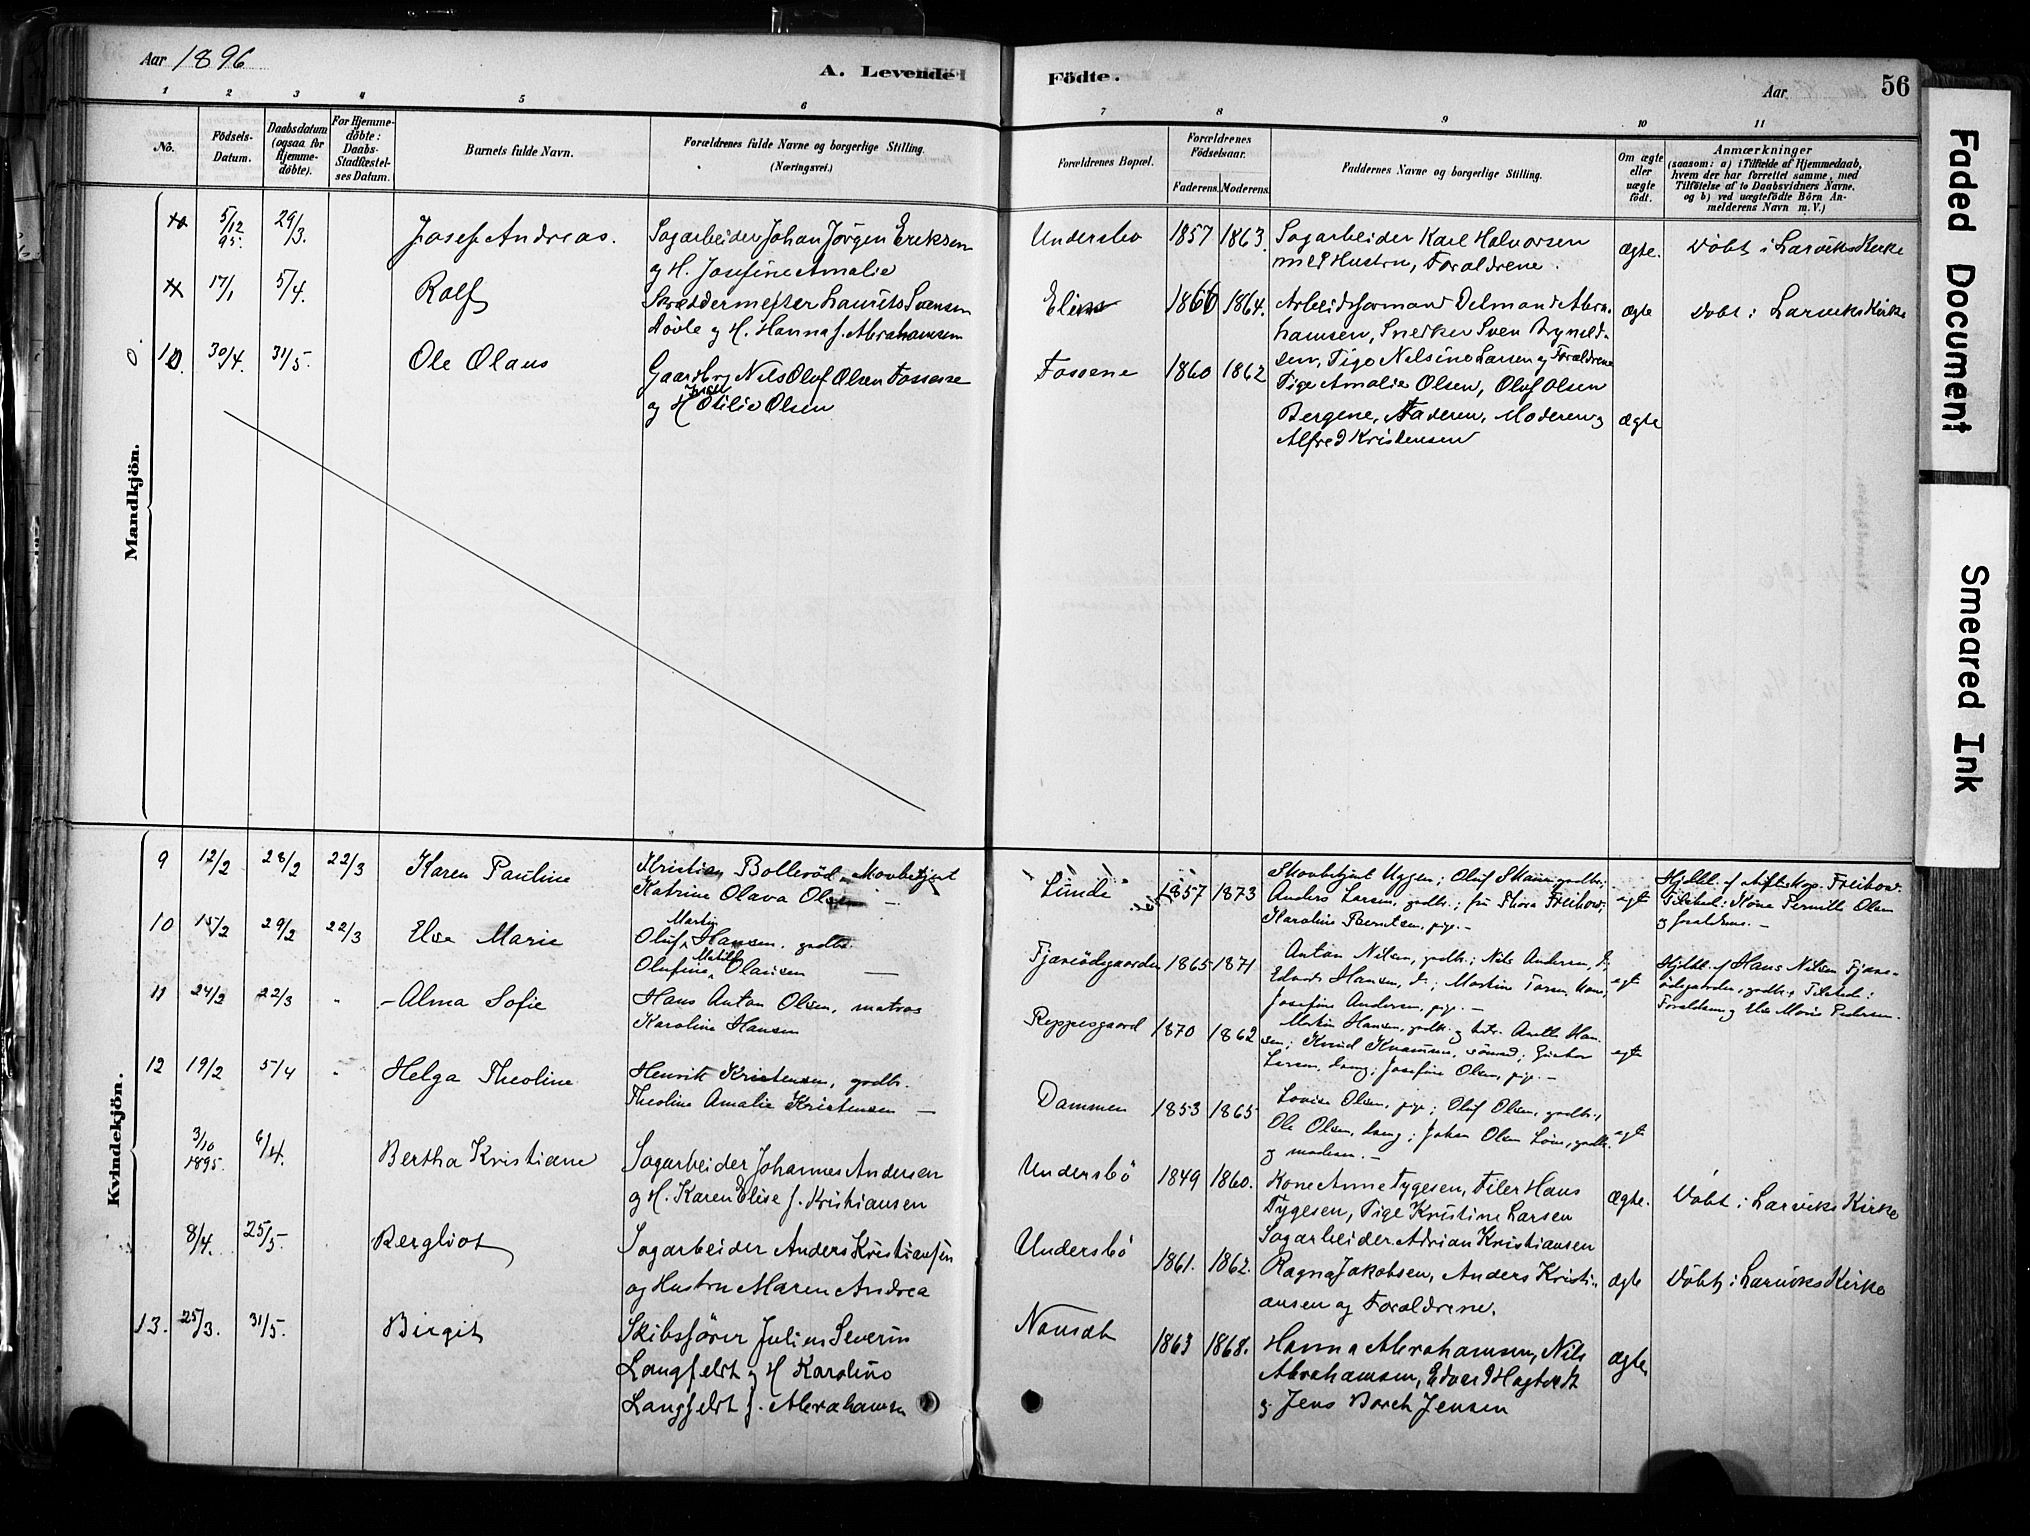 Aar 1896
A. Levende
Födte.
Aar
56
1 2 3 4 5 6 7 8 9 10 11
No.
Födsels-
Datum.
Daabsdatum
(ogsaa for
Hjemme-
döbte).
For Hjemme-
döbte:
Daabs-
Stadfæstel-
ses Datum.
Barnets fulde Navn.
Forældrenes fulde Navne og borgerlige Stilling.
(Næringsvei.)
Forældrenes Bopæl.
Forældrenes
Födselsaar.
Faderens. Moderens.
Faddernes Navne og borgerlige Stilling.
Om ægte
eller
uægte
født.
Anmærkninger
(saasom: a) i Tilfælde af Hjemmedaab,
hvem der har forrettet samme, med
Tilföielse af to Daabsvidners Navne.
og b) ved uægtefödte Börn An-
melderens Navn m. V.)
Mandkjön.
5/12 95. 29/3. Josef Andreas. Sagarbeider Johan Jörgen Eriksen
og H. Josefine Amalie
Undersbo 1857 1863. Sagarbeider Karl Halvorsen
med Hustru, Forældrene.
ægte. Döbt i Larviks Kirke
17/1 5/4. Rolf Skræddermester Laurits Svensen
og H. Hanna f. Abrahamsen
1866 1864. Arbeidsformand Delmand Abra
hamsen, Snerker Sven
ægte Döbt i Larviks Kirke
10. 30/4. 31/5. Ole Olaus Gaardbr Nils Oluf Olsen Fossene
og H Otilie Olsen
Fossene 1860 1862 sen, Pige Nilsine Larsen og Forældrene
Pige Amalie Olsen, Oluf Olsen
Bergene, Faderen, Moderen og
Alfred Kristensen
ægte
Kvindekjön.
9 12/2 28/2 22/3 Karen Pauline Kristian Bolleröd, skovbetjent
Katrine Olava Olsen —
Lunde 1857 1873 Skovbetjent Oluf
Anders Larsen, gadbr.; fru Thora Freihow;
Karoline Berntsen, pige. —
ægt
Hjdbt. af Freihow.
Pernille Olsen
og forældrene. —
10 15/2 29/2 22/3 Else Marie Oluf Martin Hansen, gadbr.
Olufine Matilde Olausen —
Fjæreödegaarden 1865 1871 Anton Nilsen, gadbr.; Nils Andersen, d;
Edvard Hansen, d.; Martine Larsen,
Josefine Andersen, pige. —
ægt
Hjdbt. af Hans Nilsen Fjære-
ödegaarden, gadbr. Tilstede:
Forældrene og Else Marie Pedersen.
11 24/2 22/3 " - Alma Sofie Hans Anton Olsen, matros
Karoline Hansen
Reppesgaard 1870 1862 Martin Hansen, gadbr. og
sen; Knud Knutsen, sömand; Gustav
Larsen, Josefine Olsen, pige. —
ægt
12 19/2 5/4 " Helga Theoline Henrik Kristensen, gadbr.
Theoline Amalie Kristensen —
Dammen 1853 1865 Lovise Olsen, pige; Oluf Olsen, gadbr.,
Ole Olsen, Johan Olsen gadbr.
og moderen. —
ægt
3/10 1895. 6/4. Bertha Kristiane Sagarbeider Johannes Andersen
og H. Karen Elise f. Kristiansen
Undersbö 1849 1860. Kone Anne Tygesen, Filer Hans
Tygesen, Pige Kristine Larsen
ægte. Döbt i Larviks Kirke
8/4. 25/5. Bergliot Sagarbeider Anders Kristiansen
og Hustru Maren Andrea
Undersbö 1861. 1862. Sagarbeider Adrian Kristiansen
Ragna Jakobsen, Anders Kristi-
ansen og Forældrene.
ægte Döbt i Larviks Kirke
13. 25/3. 31/5. Birgit Skibsförer Julius Severin
Langfeldt og H Karoline
Langfeldt f. Abrahamsen
Nanset 1863 1868. Hanna Abrahamsen, Nils
Abrahamsen, Edvard Hagtvedt
og Jens Borch Jensen
ægte
Faded Document
Smeared Ink